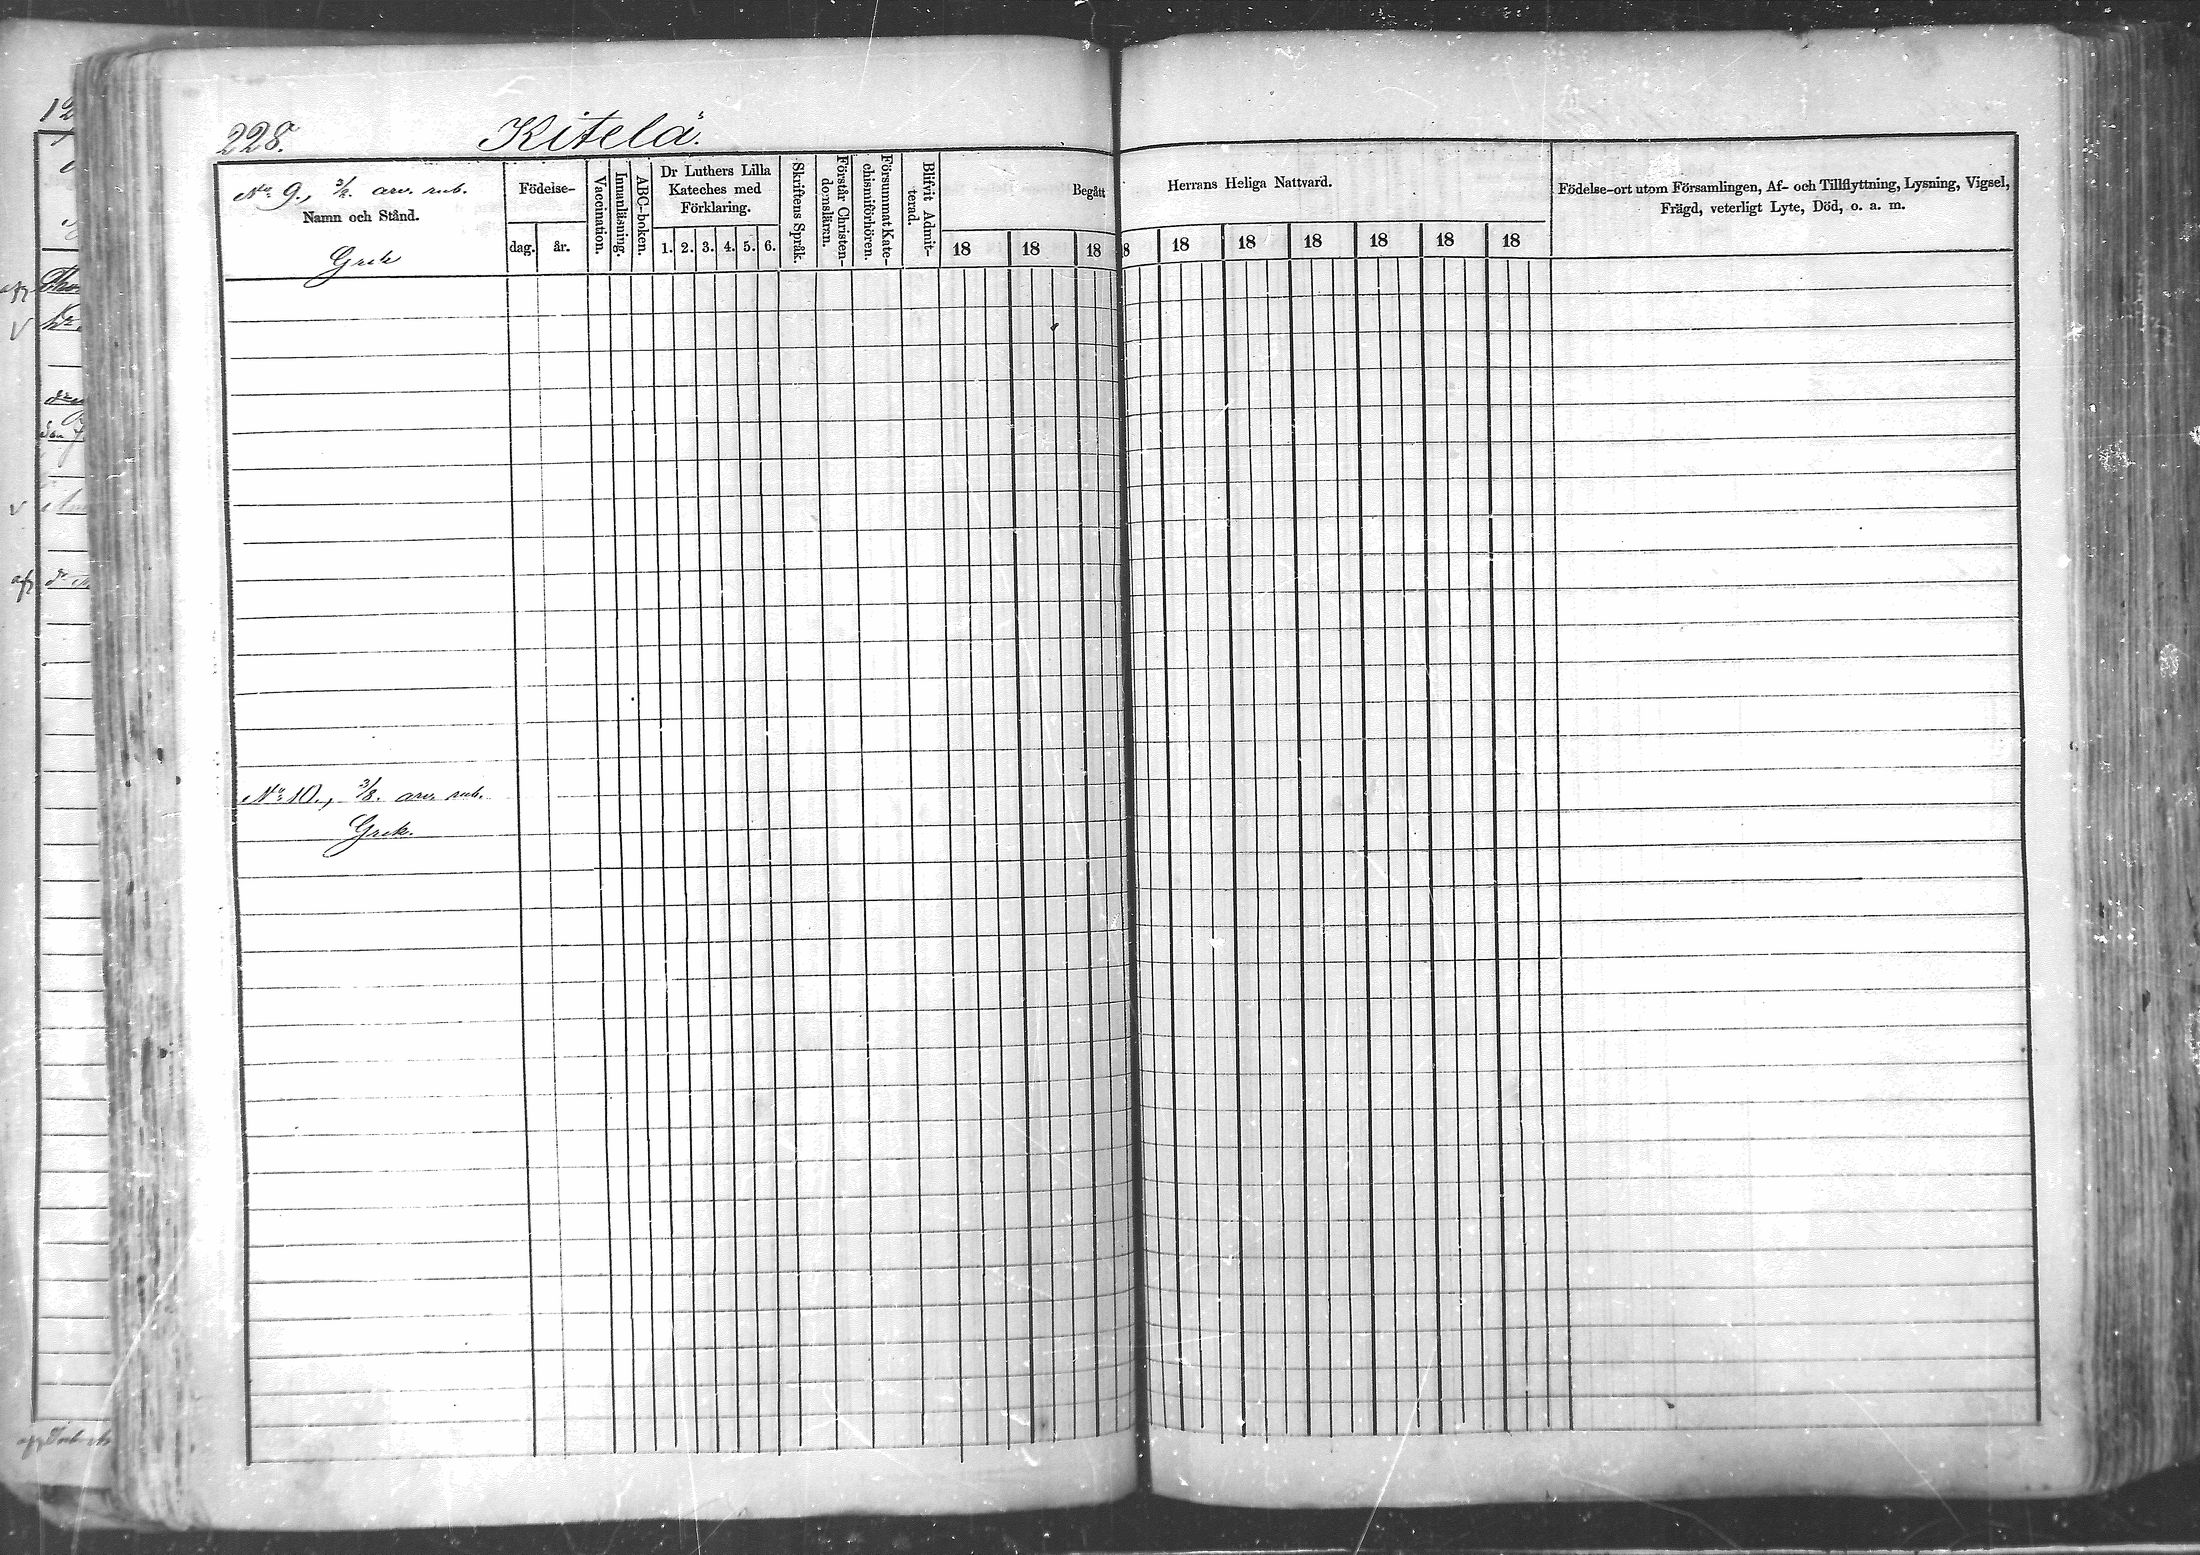 228.
Kitelä.
No 9., 3/8. arv. rub.
Namn och Stånd.
Grek
Födelse-
dag.
år.
Vaccination.
Innanläsning.
ABC-boken.
Dr Luthers Lilla
Kateches med
Förklaring.
1. 2. 3. 4. 5. 6.
Skriftens Språk.
Förstår Christen-
domsläran.
Försummat Kate-
chismiförhören.
Blifvit Admit-
terad.
Begått Herrans Heliga Nattvard.
18 18 18 18 18 18 18 18 18
Födelse-ort utom Församlingen, Af- och Tillflyttning, Lysning, Vigsel,
Frägd, veterligt Lyte, Död, o. a. m.
No 10., 3/8. arv. rub.
Grek.